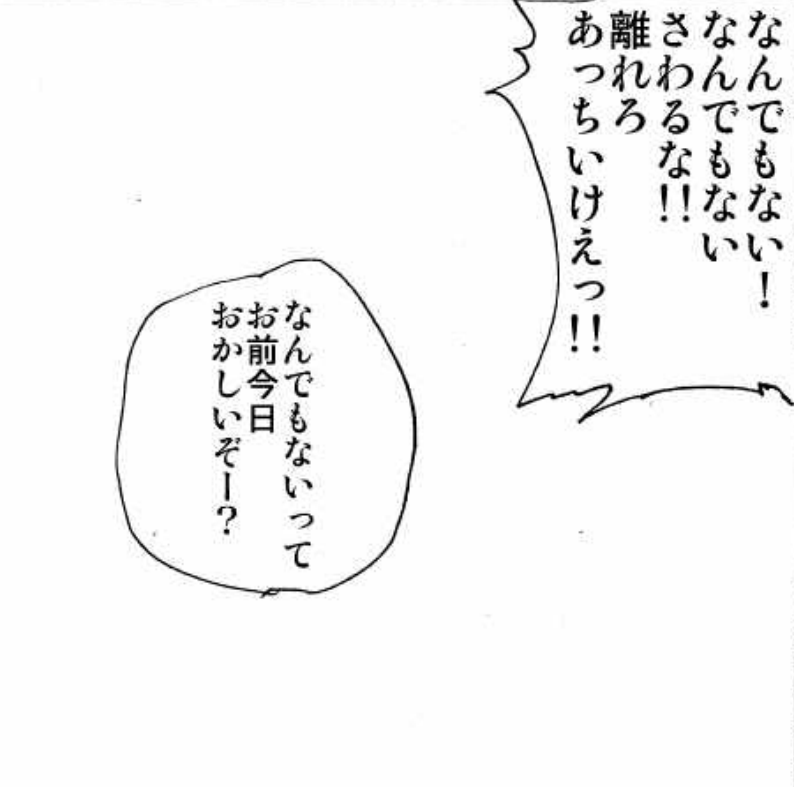 なんでもない！
なんでもない
さわるな!!
離れろ
あっちいけえっ!!
なんでもないって
お前今日
おかしいぞー？